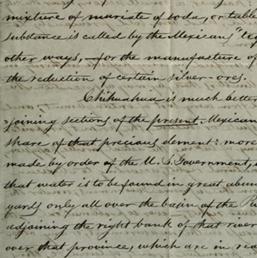 mixture of muriate of soda, or table
substance is called by the Mexicans "te
other ways,—for the manufacture of
the reduction of certain silver-ores.
Chihuahua is much better
joining sections of the present Mexican
share of that precious element: more
made by order of the U. S. Government,
that water is to be found in great abun
yards only all over the basin of the
adjoining the right bank of that river
over that province, which are in rea